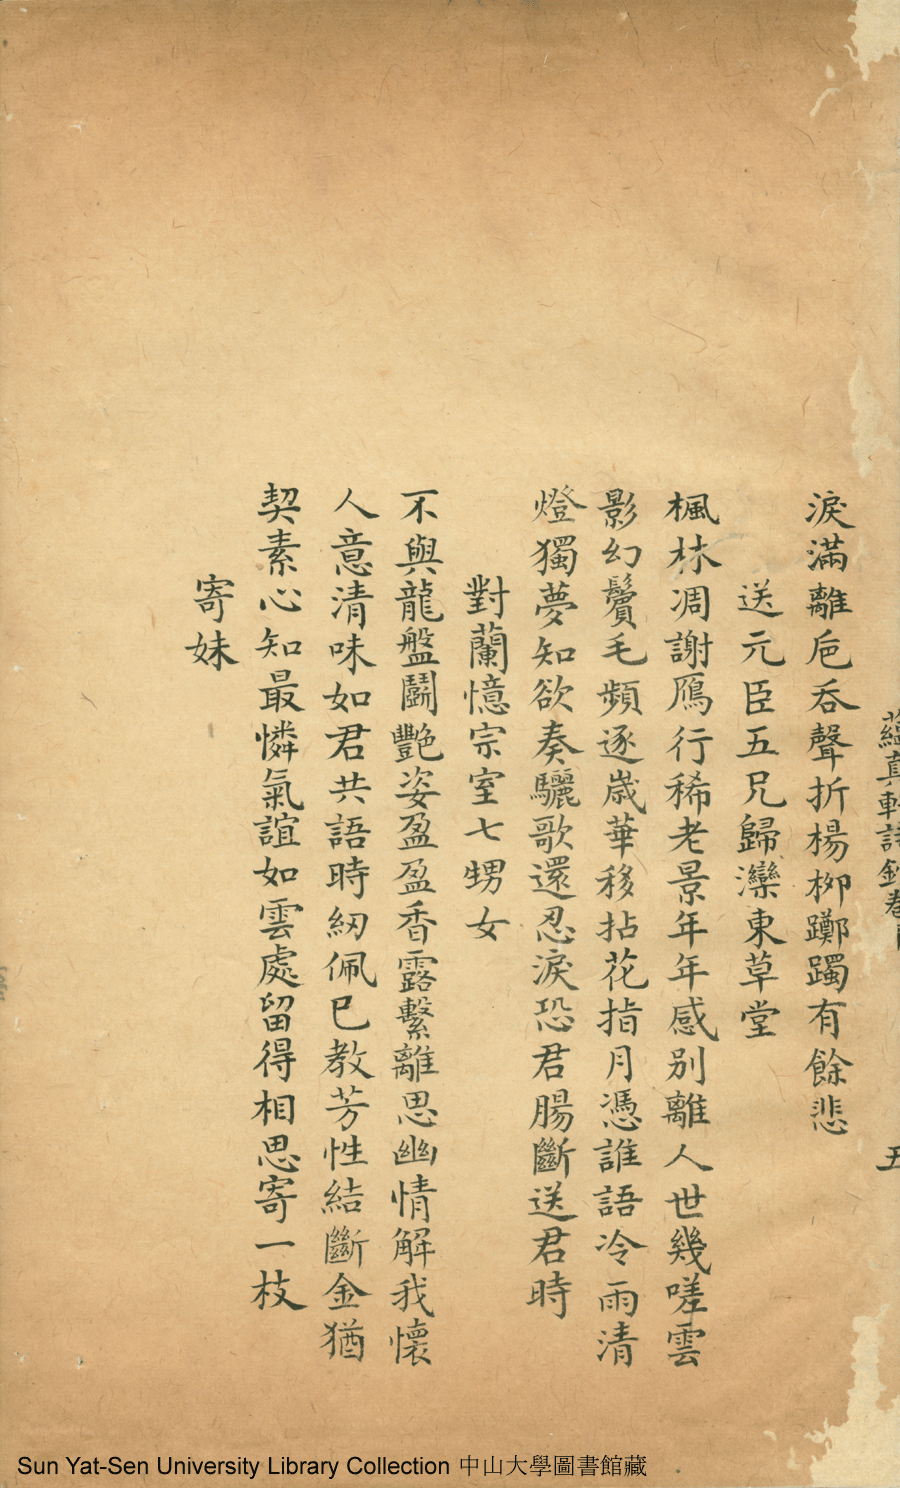 蘊真軒詩鈔卷
五
淚滿離巵吞聲折楊柳躑躅有餘悲
送元臣五兄歸灤東草堂
楓林凋謝鴈行稀老景年年感别離人世幾嗟雲
影幻鬢毛頻逐嵗華移拈花指月憑誰語冷雨清
燈獨夢知欲奏驪歌還忍淚恐君腸斷送君時
對蘭憶宗室七甥女
不與龍盤鬪艷姿盈盈香露繫離思幽情解我懷
人意清味如君共語時紉佩已教芳性結斷金猶
契素心知最憐氣誼如雲處留得相思寄一枝
寄妹
Sun Yat-Sen University Library Collection 中山大學圖書館藏